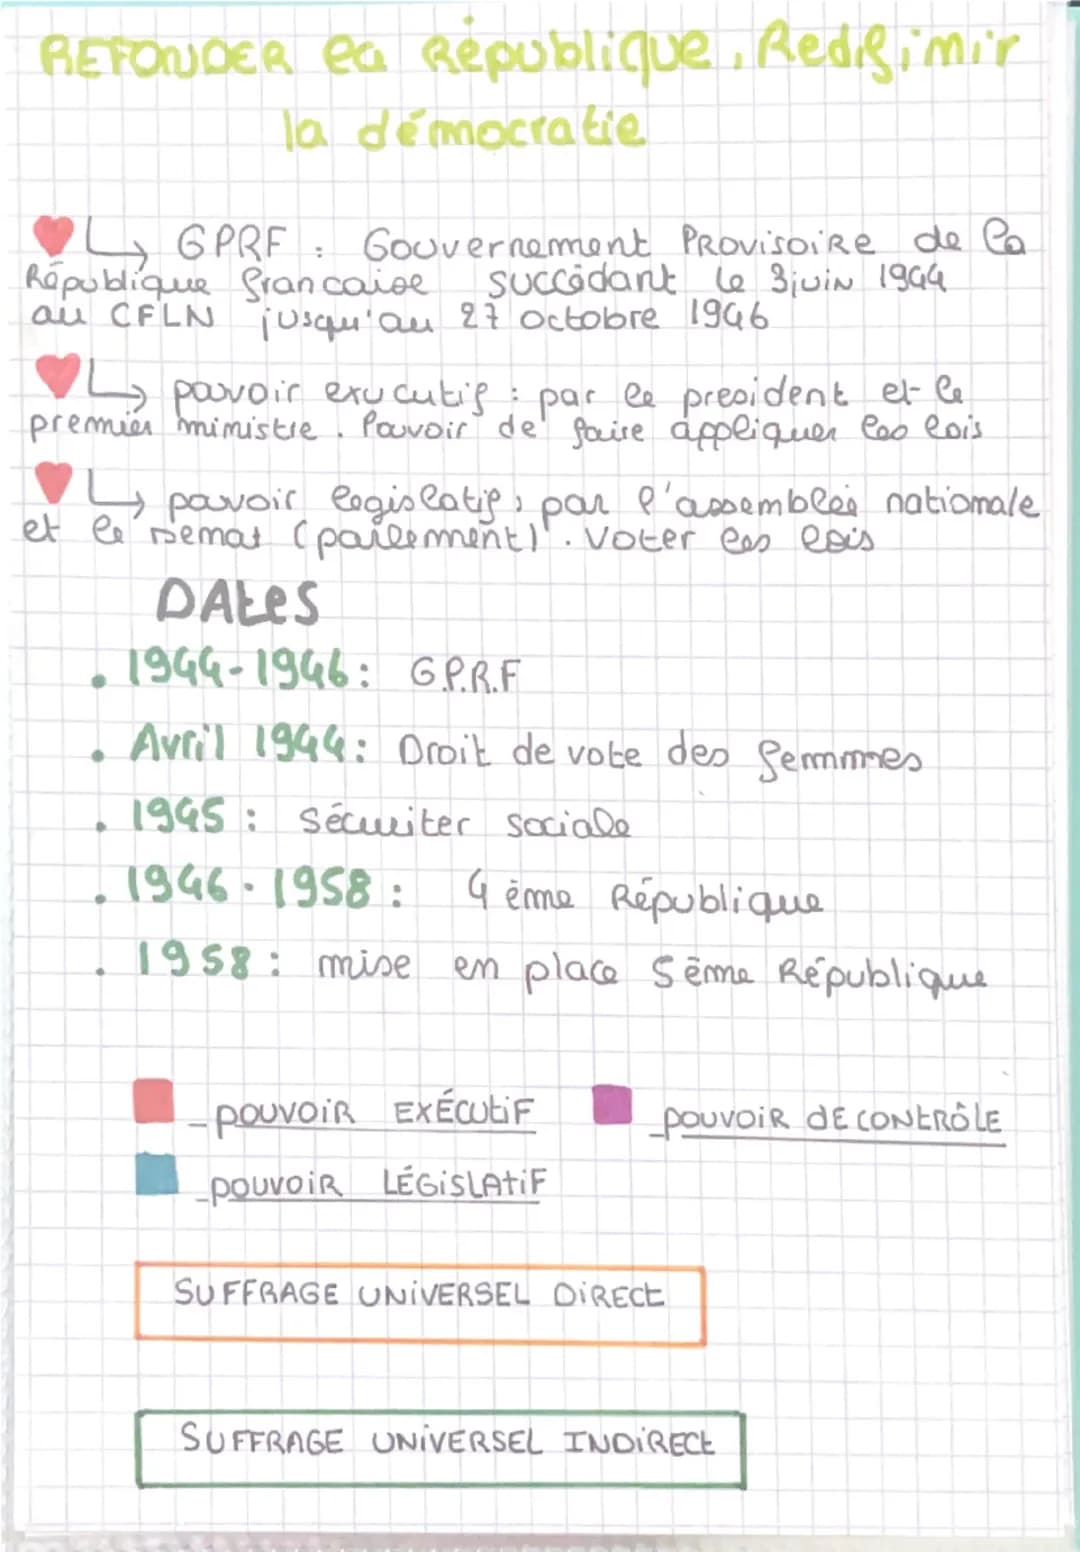 REFONDER la République, Redéfinir
la démocratie
GPRF : Gouvernement PROVISOIRE de la
République francaise succédant le 3 juin 1944
au CFLN jusqu'au 27 octobre 1946
pouvoir exucutif : par le president et le
premier ministre. Pouvoir de faire appliquer les lois
pouvoir legislatif, par l'assemblée nationale
et le senat (parlement). Voter les lois
DAtes
. 1944-1946 : G.P.R.F
. Avril 1944 : Droit de vote des femmes
. 1945 : sécuriter sociale
. 1946-1958 : 4 ème République
. 1958 : mise en place 5ème République
_pouvoiR EXÉCUtiF
_pouvoiR dE CONtRÔLE
_pouvoiR LÉGiSLAtiF
SUFFRAGE UNiVERSEL DiRECt
SUFFRAGE UNiVERSEL INDiRECt